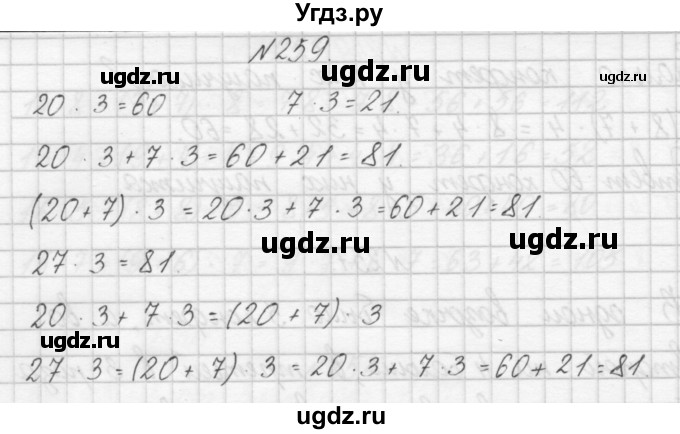 Угдз.ру
№259.
ugdz.ru ugdz.ru ugdz.ru
20 · 3 = 60 7 · 3 = 21.
20 · 3 + 7 · 3 = 60 + 21 = 81.
(20+7) · 3 = 20·3 + 7 · 3 = 60+21=81.
ugdz.ru ugdz.ru
27 · 3 = 81.
20 · 3 + 7 · 3 = (20 + 7) · 3
ugdz.ru
27 · 3 = (20 + 7) · 3 = 20·3 + 7·3 = 60+21=81.
ugdz.ru ugdz.ru
ugdz.ru